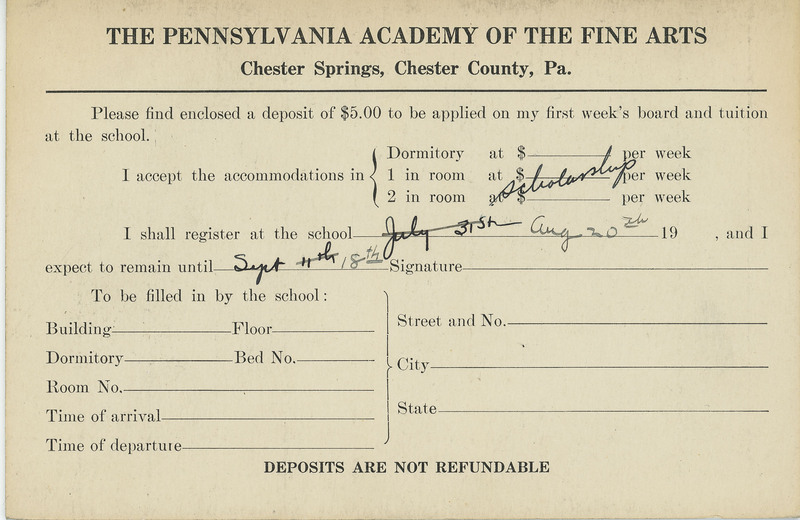 THE PENNSYLVANIA ACADEMY OF THE FINE ARTS
Chester Springs, Chester County, Pa.
Please find enclosed a deposit of $5.00 to be applied on my first week's board and tuition
at the school.
Dormitory at $ per week
I accept the accommodations in { 1 in room at $ per week
2 in room at $ per week
scholarship
I shall register at the school July 31st Aug 20th 19 , and I
expect to remain until Sept 11th 18th Signature
To be filled in by the school:
Building Floor
Dormitory Bed No.
Room No.
Time of arrival
Time of departure
Street and No.
City
State
DEPOSITS ARE NOT REFUNDABLE